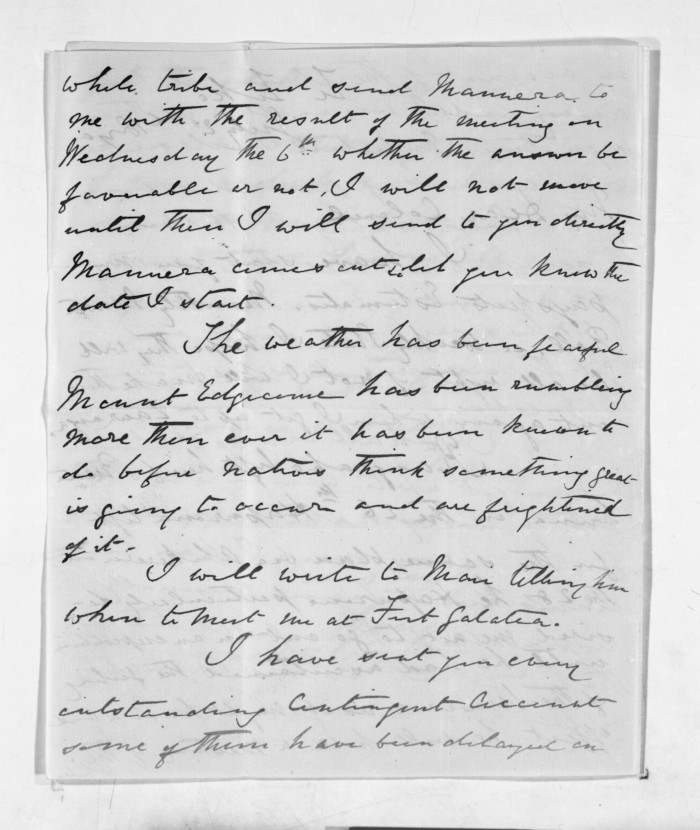 whole tribe and send Mannera to
me with the result of the meeting on
Wednesday the 6th whether the answer be
favourable or not, I will not move
until then I will send to you directly
Mannera comes out & let you know the
date I start.
The weather has been fearful
Mount Edgecome has been rumbling
more then ever it has been known to
do before natives think something great
is going to occur and are frightened
of it.
I will write to Mair telling him
when to meet me at Fort Galatea.
I have sent you every
outstanding Contingent Account
some of them have been delayed on